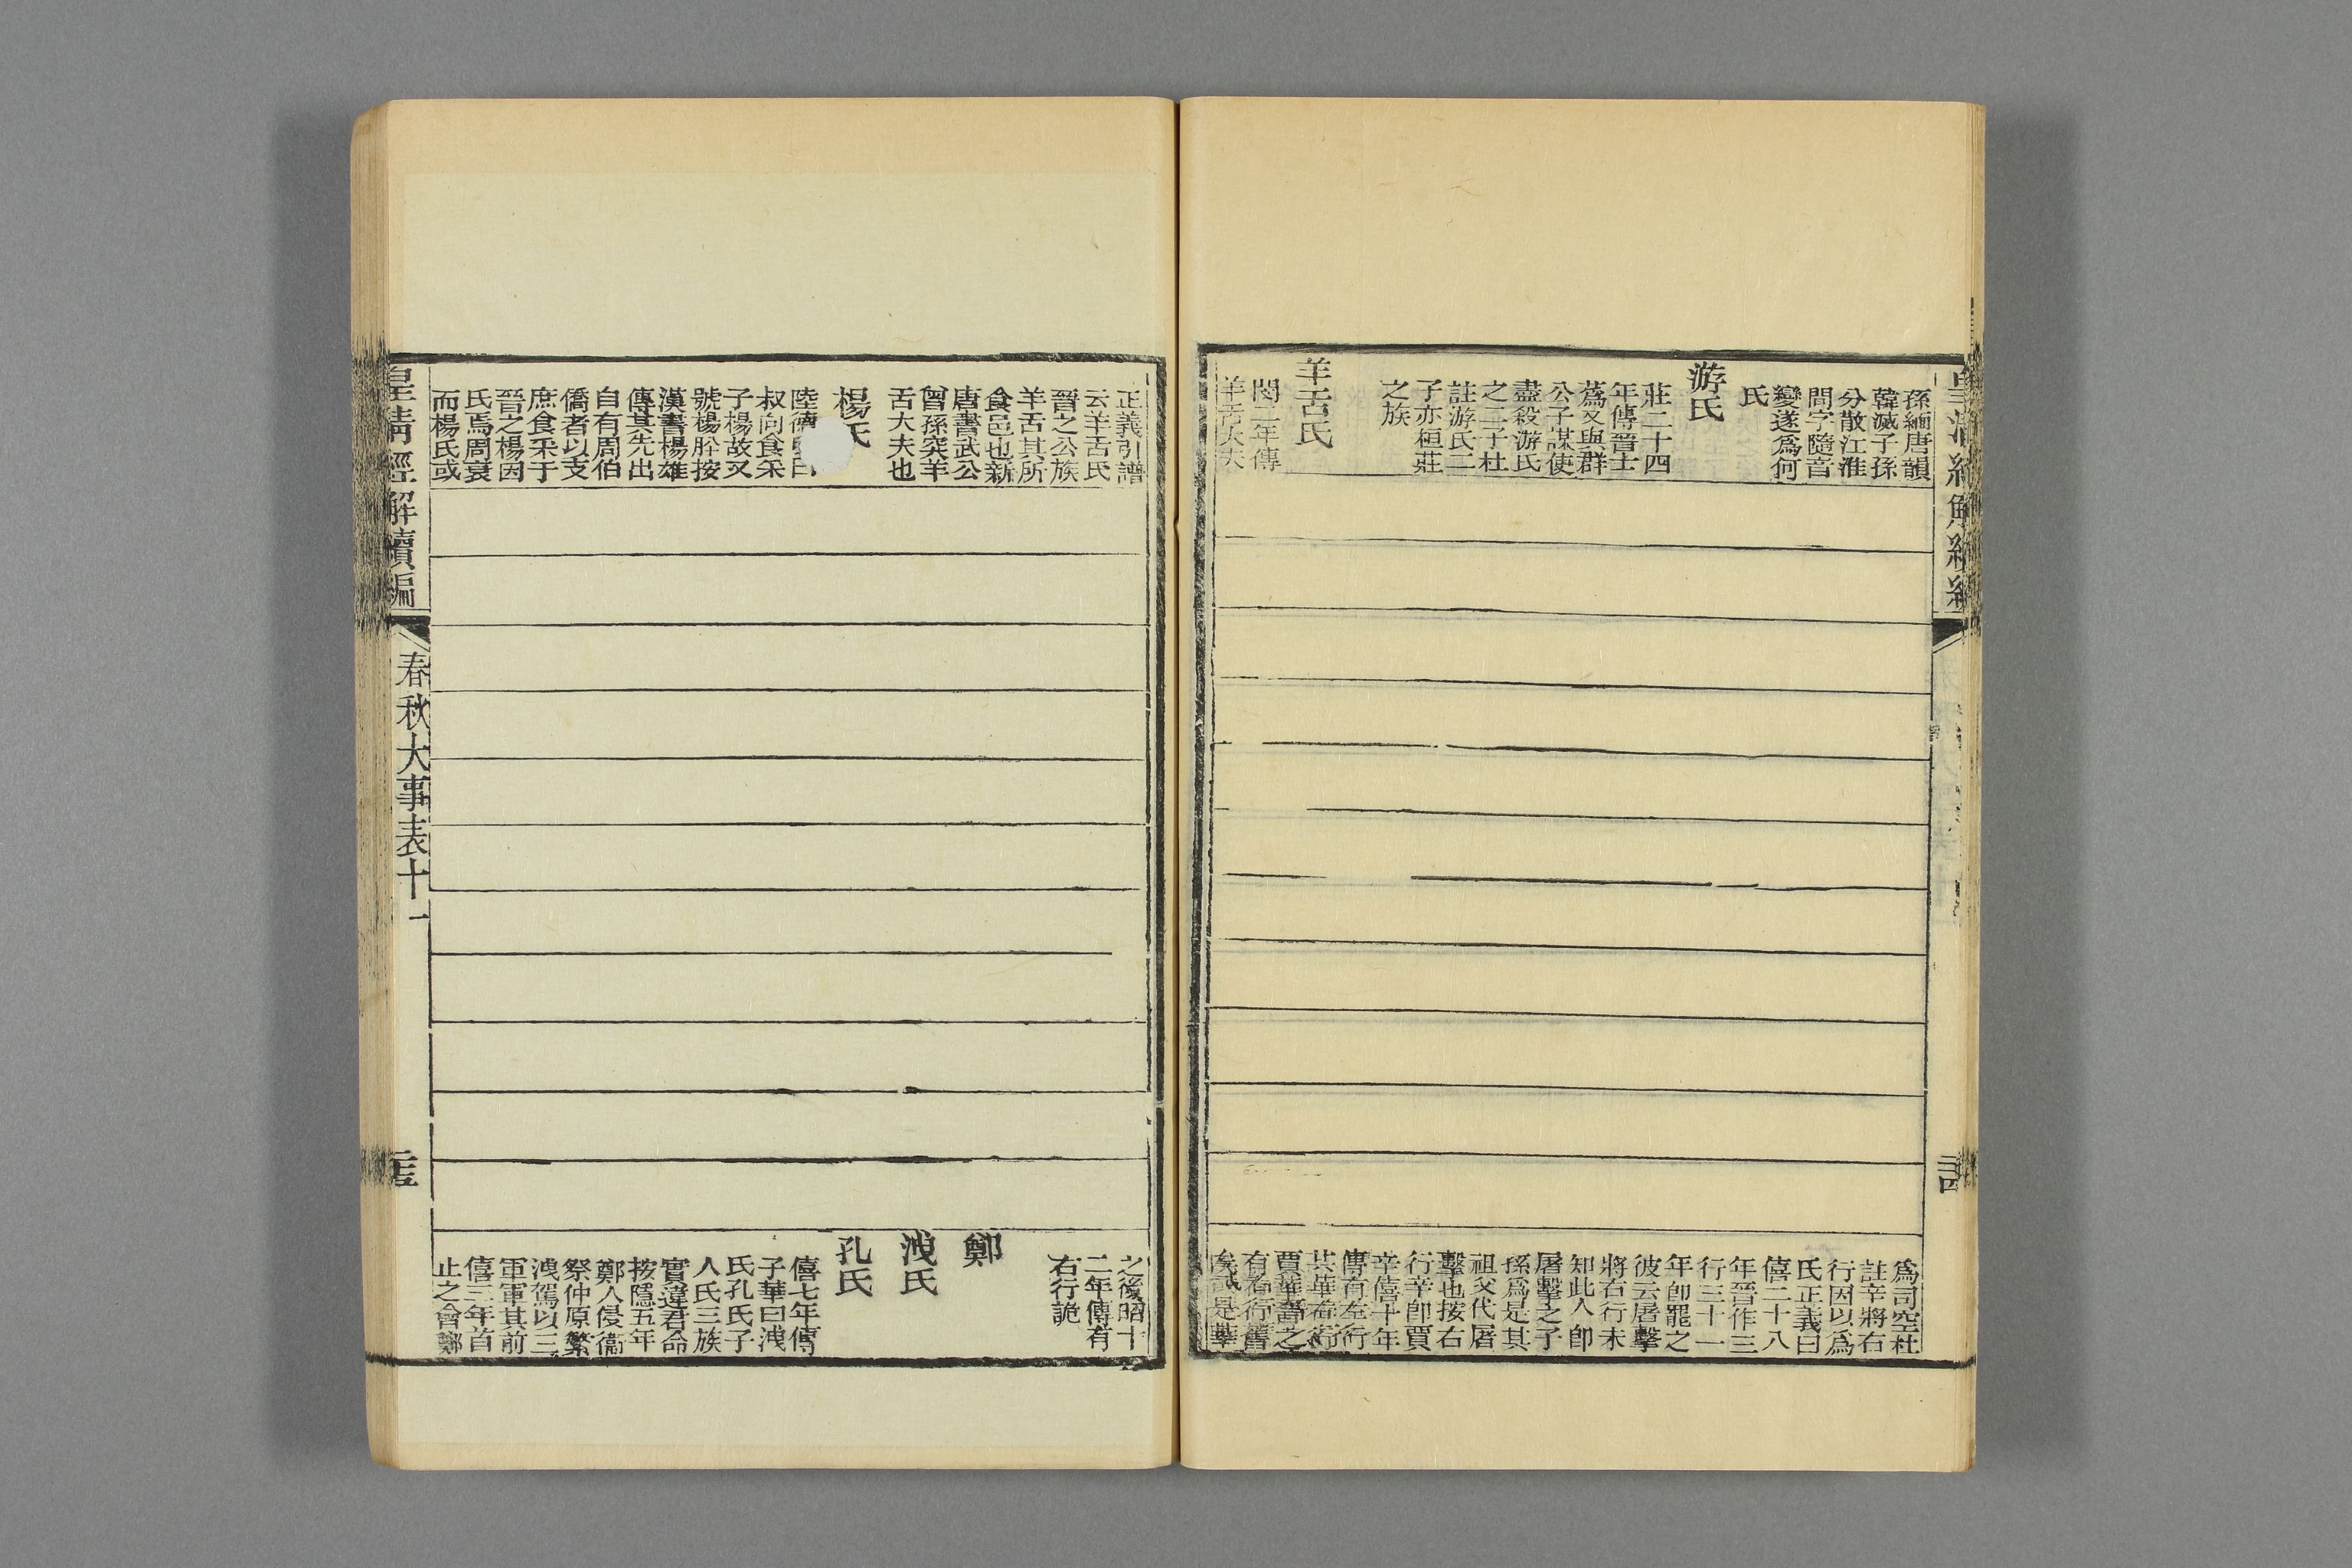 孫緬唐韻
韓滅子孫
分散江淮
間字隨音
變遂爲何
氏
游氏
莊二十四
年傳晉士
蔿又與群
公子謀使
盡殺游氏
之二子杜
註游氏二
子亦桓莊
之族
羊舌氏
閔二年傳
羊舌大夫
爲司空杜
註辛將右
行因以爲
氏正義曰
僖二十八
年晉作三
行三十一
年卽罷之
彼云屠擊
將右行未
知此人卽
屠擊之子
孫爲是其
祖父代屠
擊也按右
行辛卽賈
辛僖十年
傳有左行
共華右行
賈華籌之
有右行舊
矣或是華
正義引譜
云羊舌氏
晉之公族
羊舌其所
食邑也新
唐書武公
曾孫突羊
舌大夫也
楊氏
陸德曰
叔向食采
子楊故又
號楊肸按
漢書楊雄
傳其先出
自有周伯
僑者以支
庶食采于
晉之楊因
氏焉周衰
而楊氏或
之後昭十
二年傳有
右行詭
鄭
洩氏
孔氏
僖七年傳
子華曰洩
氏孔氏子
人氏三族
實違君命
按隱五年
鄭人侵衞
祭仲原繁
洩駕以三
軍軍其前
僖三年首
止之會鄭
皇清經解續編
春秋大事表十一